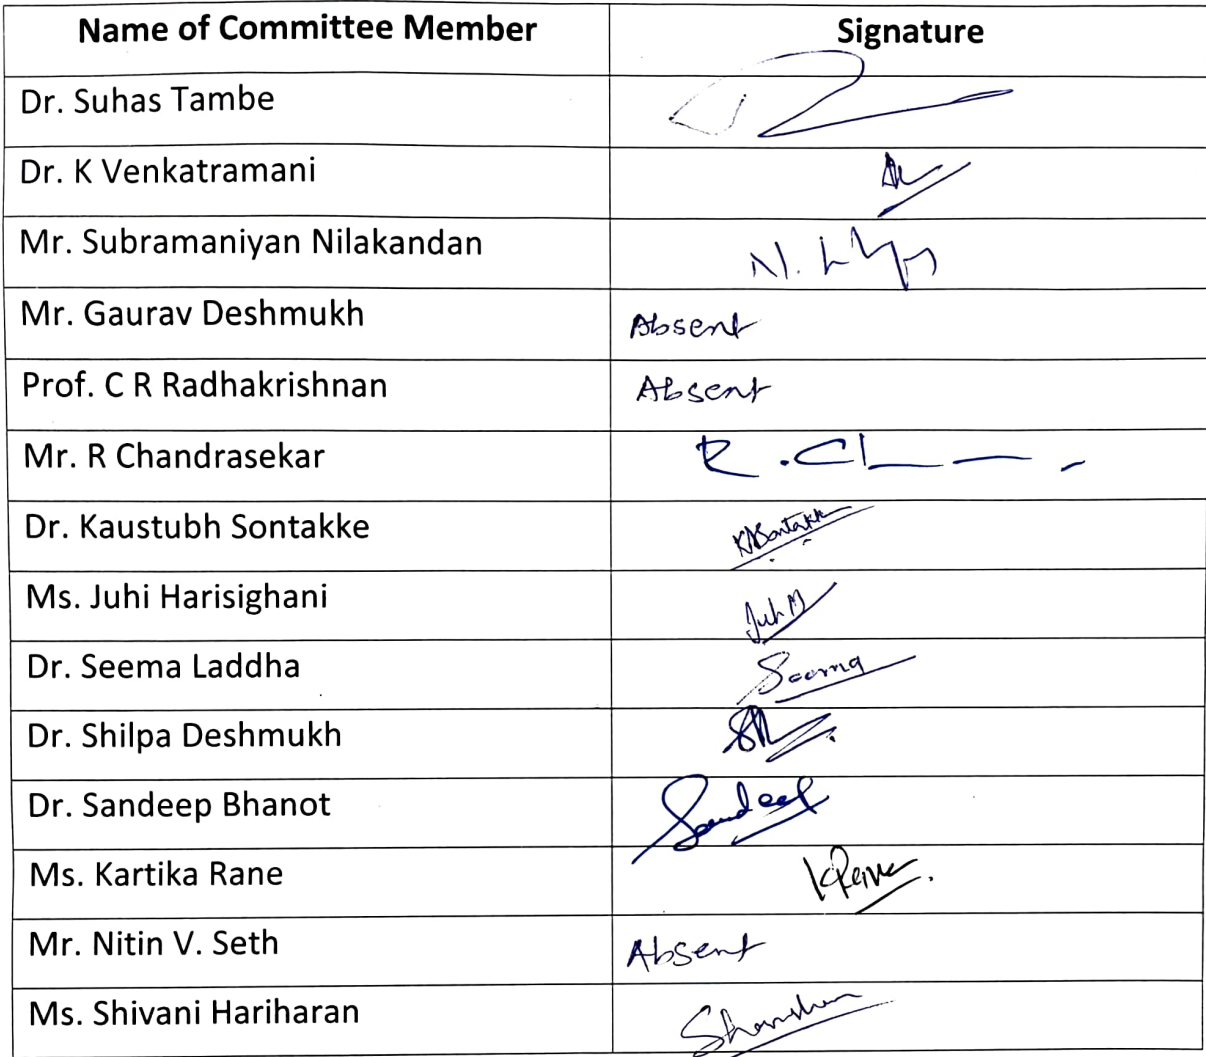 Name of Committee Member Signature
Dr. Suhas Tambe
Dr. K Venkatramani
Mr. Subramaniyan Nilakandan
Mr. Gaurav Deshmukh Absent
Prof. C R Radhakrishnan Absent
Mr. R Chandrasekar
Dr. Kaustubh Sontakke
Ms. Juhi Harisighani
Dr. Seema Laddha Seema
Dr. Shilpa Deshmukh
Dr. Sandeep Bhanot Sandeep
Ms. Kartika Rane
Mr. Nitin V. Seth Absent
Ms. Shivani Hariharan